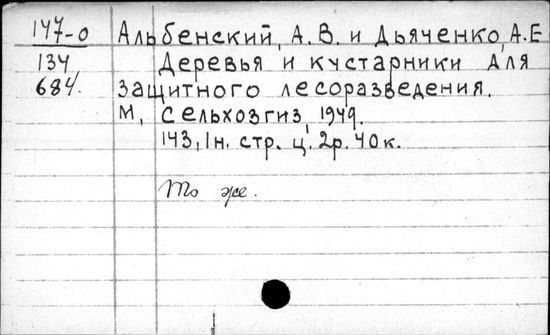 147-0 Альбенский, А.В. и Дьяченко, А.Е
134 Деревья и кустарники для
684. защитного лесоразведения.
М, Сельхозгиз, 1949.
143, 1н. стр. ц. 2р. 40к.
То же.